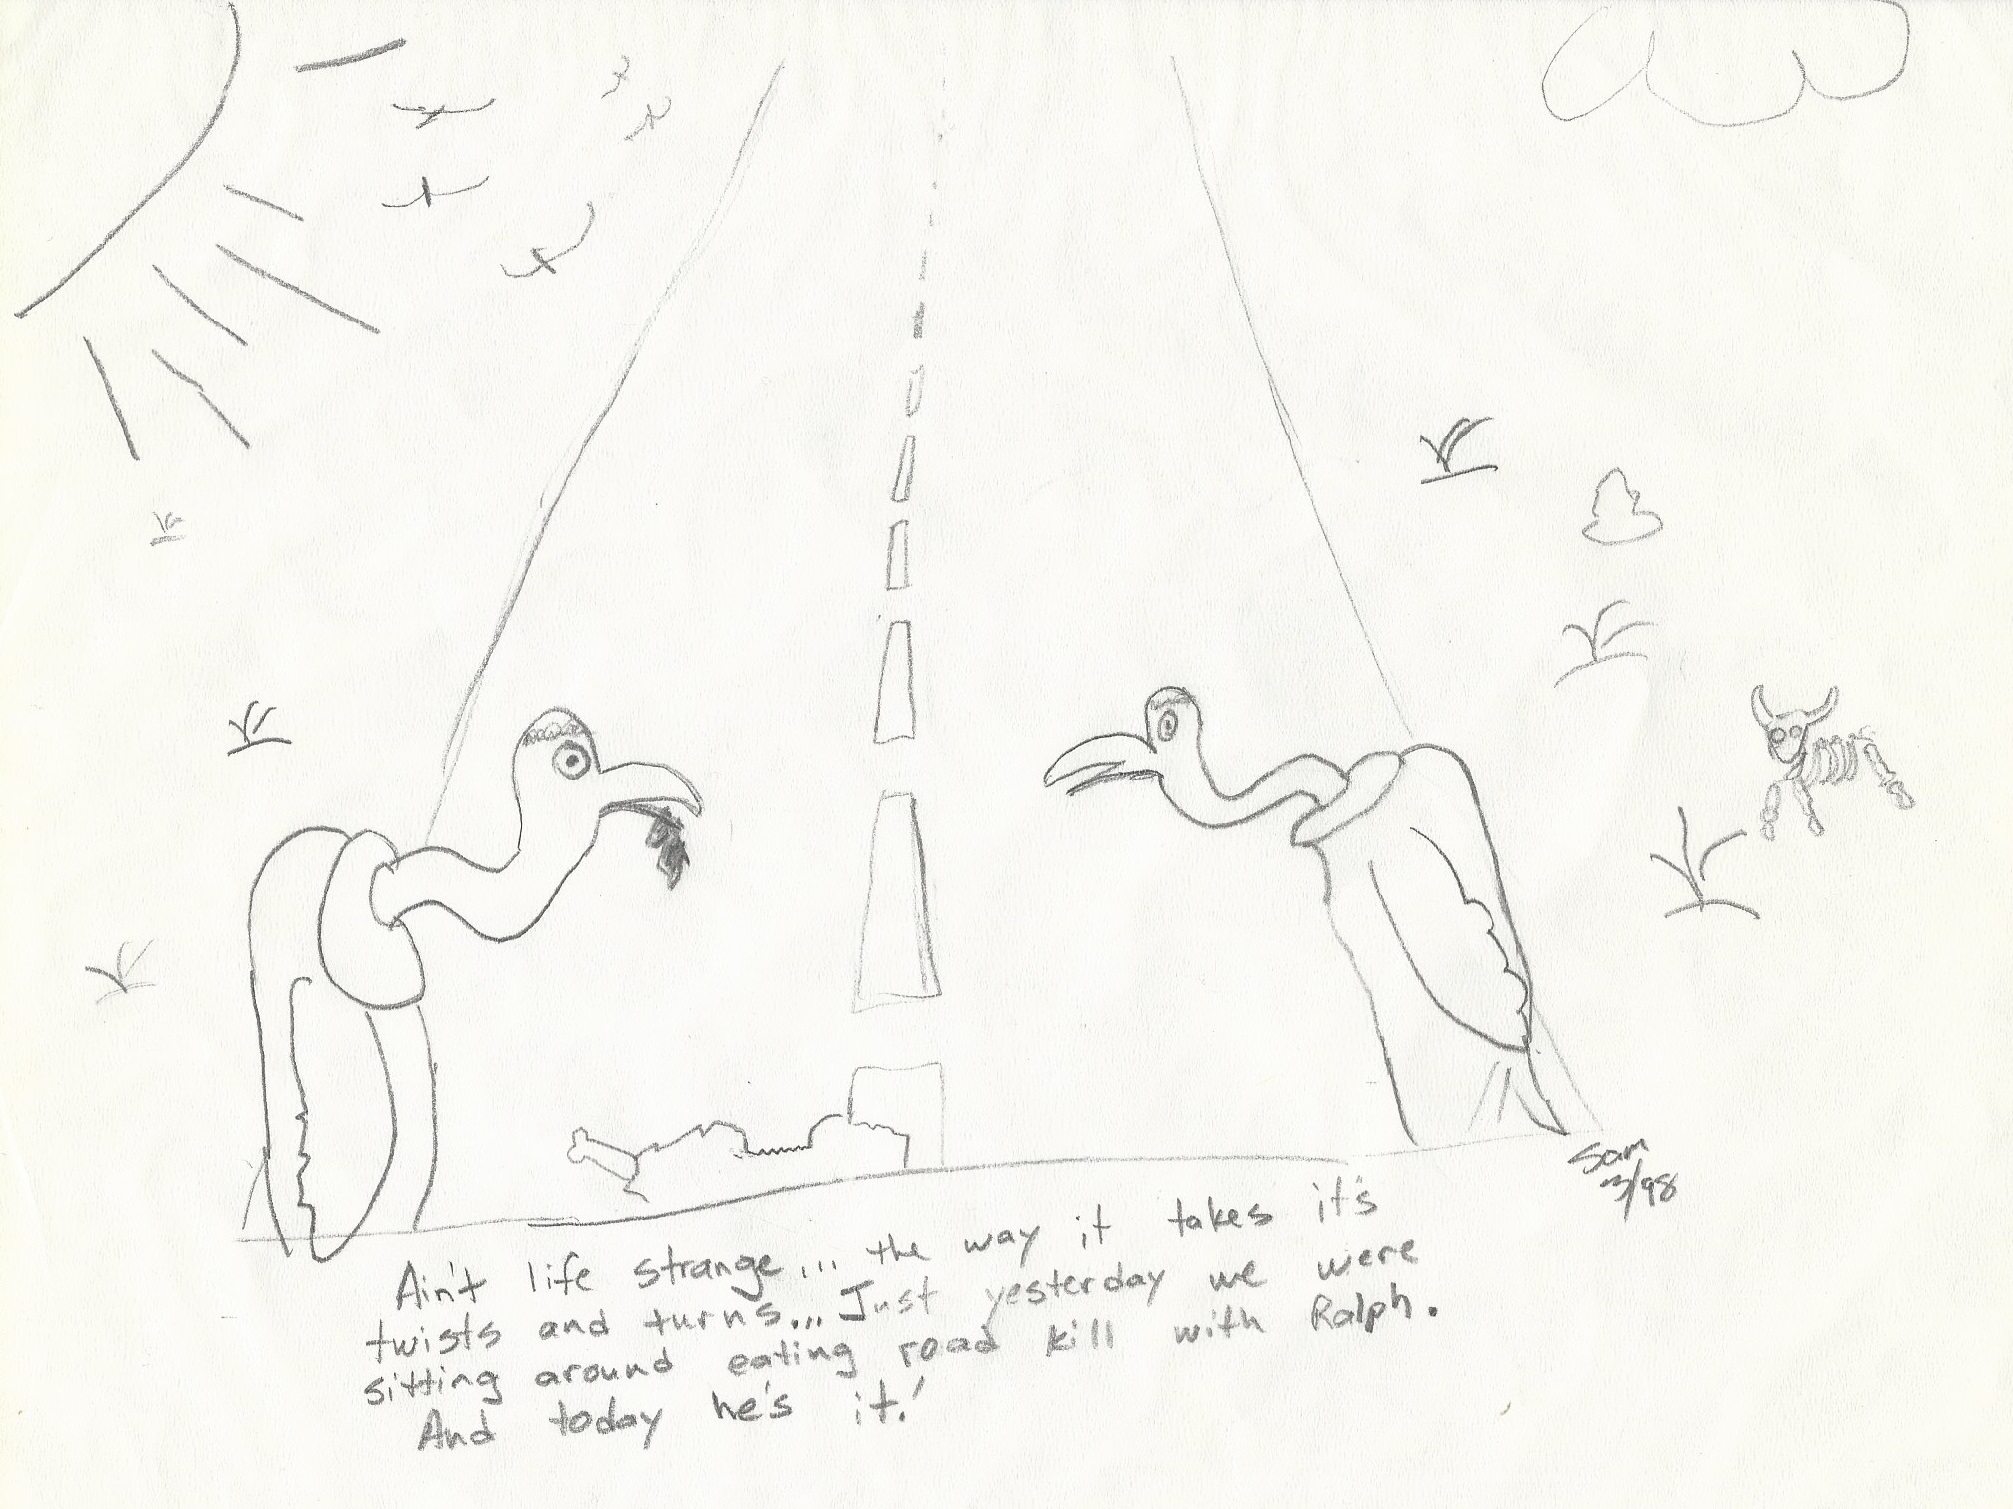 Sam
3/98
Ain't life strange... the way it takes it's
twists and turns... Just yesterday we were
sitting around eating road kill with Ralph.
And today he's it!